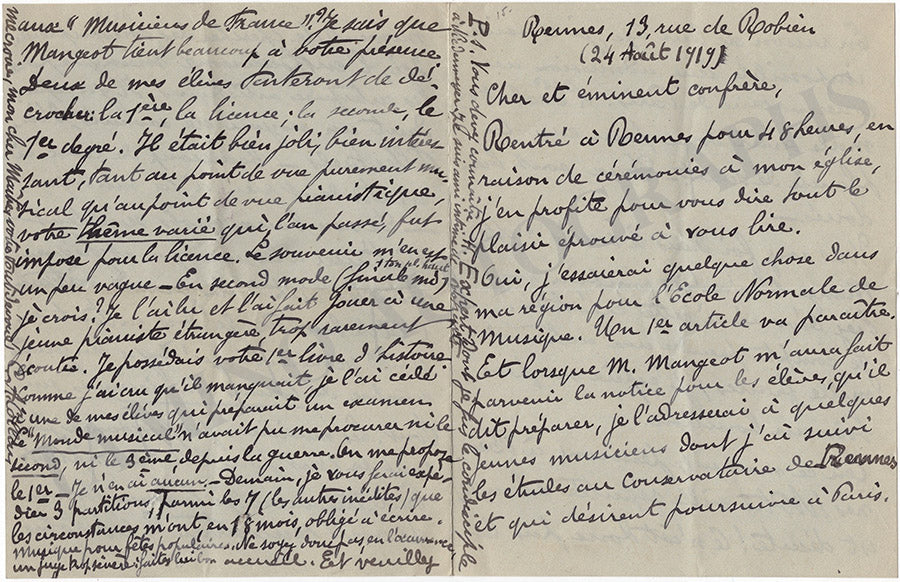 15.
Rennes, 13 rue de Robien
(24 Août 1919)
Cher et éminent confrère,
Rentré à Rennes pour 48 heures, en
raison de cérémonies à mon église,
j'en profite pour vous dire tout le
plaisir éprouvé à vous lire.
Oui, j'essaierai quelque chose dans
ma région pour l'Ecole Normale de
Musique. Un 1er article va paraître.
Et lorsque M. Mangeot m'aura fait
parvenir la notice pour les élèves, qu'il
dit préparer, je l'adresserai à quelques
jeunes musiciens dont j'ai suivi
les études au Conservatoire de Rennes
et qui désirent poursuivre à Paris.
aux "Musiciens de France"! Je sais que
Mangeot tient beaucoup à votre présence
Deux de mes élèves tenteront de dé
crocher: la 1ère, la licence; la seconde, le
1er degré. Il était bien joli, bien intéres
sant, tant au point de vue purement mu
sical qu'au point de vue pianistique,
votre thème varié qui, l'an passé, fut
imposé pour la licence. Le souvenir m'en est
un peu vague - En second mode (finale mi)
1 ton pl. haut
je crois? Je l'ai lu et l'ai fait jouer à une
jeune pianiste étrangère trop rarement
écoutée. Je possédais votre 1er livre d'histoire
comme j'ai cru qu'il manquait, je l'ai cédé
à une de mes élèves qui préparait un examen
Le "Monde musical" n'avait pu me procurer ni le
second, ni le 3ème depuis la guerre. On me propose
le 1er - Je n'en ai aucun. - Demain, je vous ferai expé-
dier 3 partitions, parmi les 7 (les autres inédites) que
les circonstances m'ont, en 18 mois, obligé à écrire.
musique pour fêtes populaires. Ne soyez donc pas en l'occurrence
un juge trop sévère: faites lui bon accueil. Et veuillez
me croire, mon cher Maître, votre tout dévoué
P.S. Vous devez connaître H. Expert dont je fus le condisciple
à Niedermeyer. Je suis ami intime